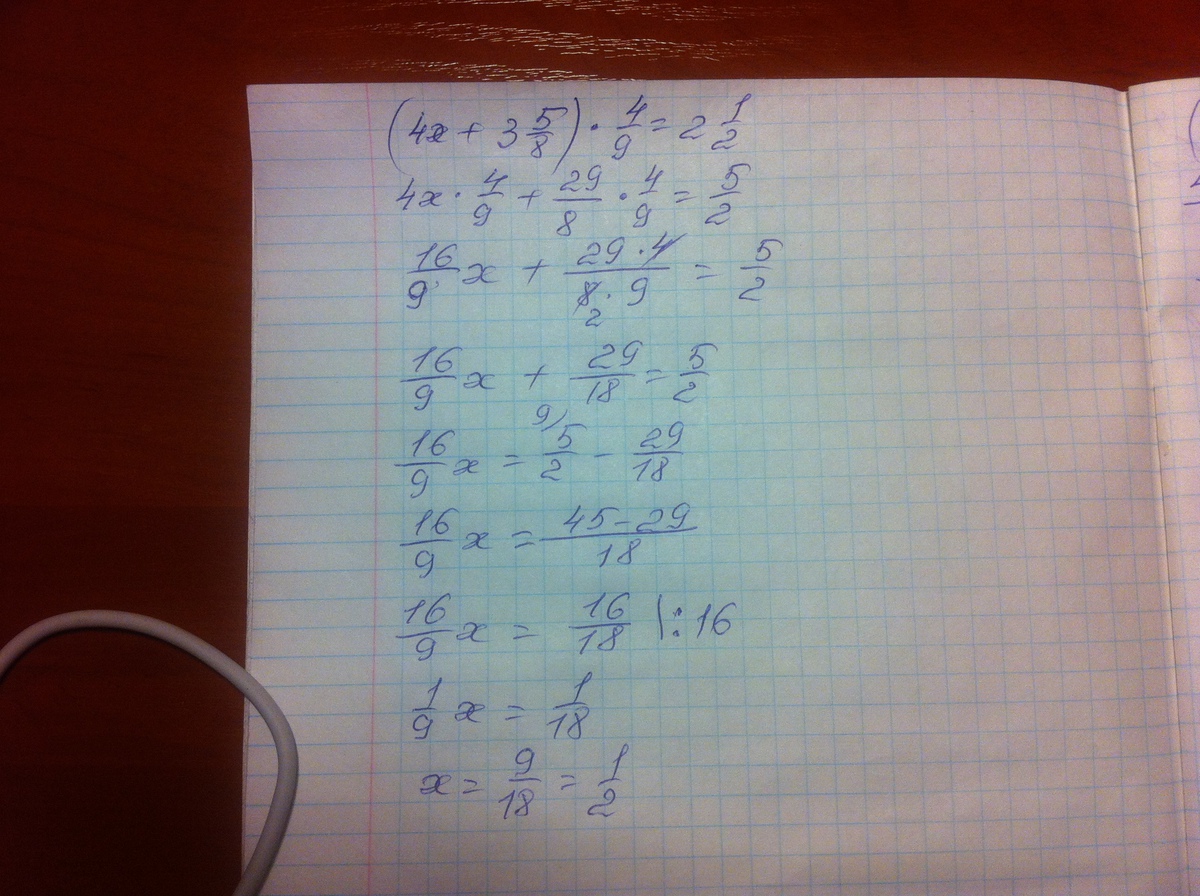 (4x + 3 5/8) · 4/9 = 2 1/2
4x · 4/9 + 29/8 · 4/9 = 5/2
16/9 x + 29·4/8·9 = 5/2
2
16/9 x + 29/18 = 5/2
9/
16/9 x = 5/2 - 29/18
16/9 x = 45-29/18
16/9 x = 16/18 |:16
1/9 x = 1/18
x = 9/18 = 1/2